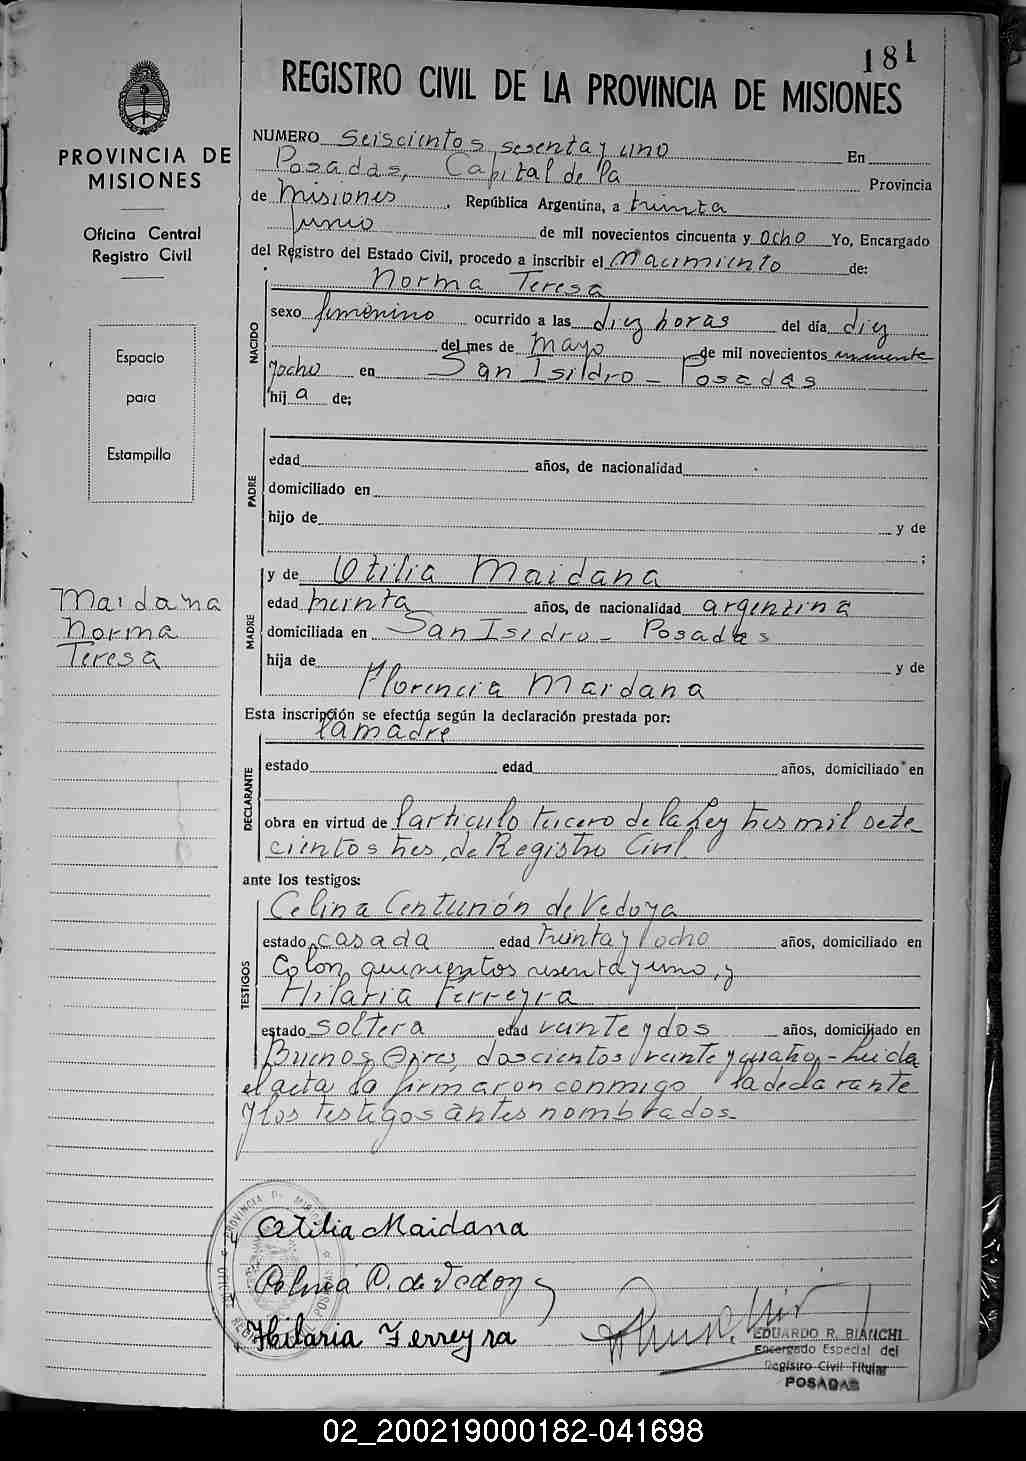 181
REGISTRO CIVIL DE LA PROVINCIA DE MISIONES
PROVINCIA DE
MISIONES
Oficina Central
Registro Civil
Espacio
para
Estampilla
Maidana
Norma
Teresa
NUMERO Seiscientos sesenta y uno En
Posadas, Capital de la Provincia
de Misiones, República Argentina, a treinta
junio de mil novecientos cincuenta y ocho Yo, Encargado
del Registro del Estado Civil, procedo a inscribir el Nacimiento de:
Norma Teresa
NACIDO
sexo femenino ocurrido a las diez horas del día diez
del mes de Mayo de mil novecientos cincuenta
y ocho en San Isidro - Posadas
hij a de;
PADRE
edad años, de nacionalidad
domiciliado en
hijo de y de
;
MADRE
y de Otilia Maidana
edad treinta años, de nacionalidad argentina
domiciliada en San Isidro - Posadas
hija de y de
Florencia Maidana
Esta inscripción se efectúa según la declaración prestada por:
la madre
DECLARANTE
estado edad años, domiciliado en
obra en virtud de l'articulo tercero de la Ley tres mil sete
cientos tres, de Registro Civil.
ante los testigos:
TESTIGOS
Celina Centurión de Vedoya
estado casada edad treinta y ocho años, domiciliado en
Colon, quinientos sesenta y uno, y
Hilaria Ferreyra
estado soltera edad veinte y dos años, domiciliado en
Buenos Aires, doscientos veinte y cuatro.- Leida
el acta la firmaron conmigo la declarante
y los testigos antes nombrados.-
Otilia Maidana
Celina C. de Vedoya
Hilaria Ferreyra
EDUARDO R. BIANCHI
Encargado Especial del
Registro Civil Titular
POSADAS
02_200219000182-041698